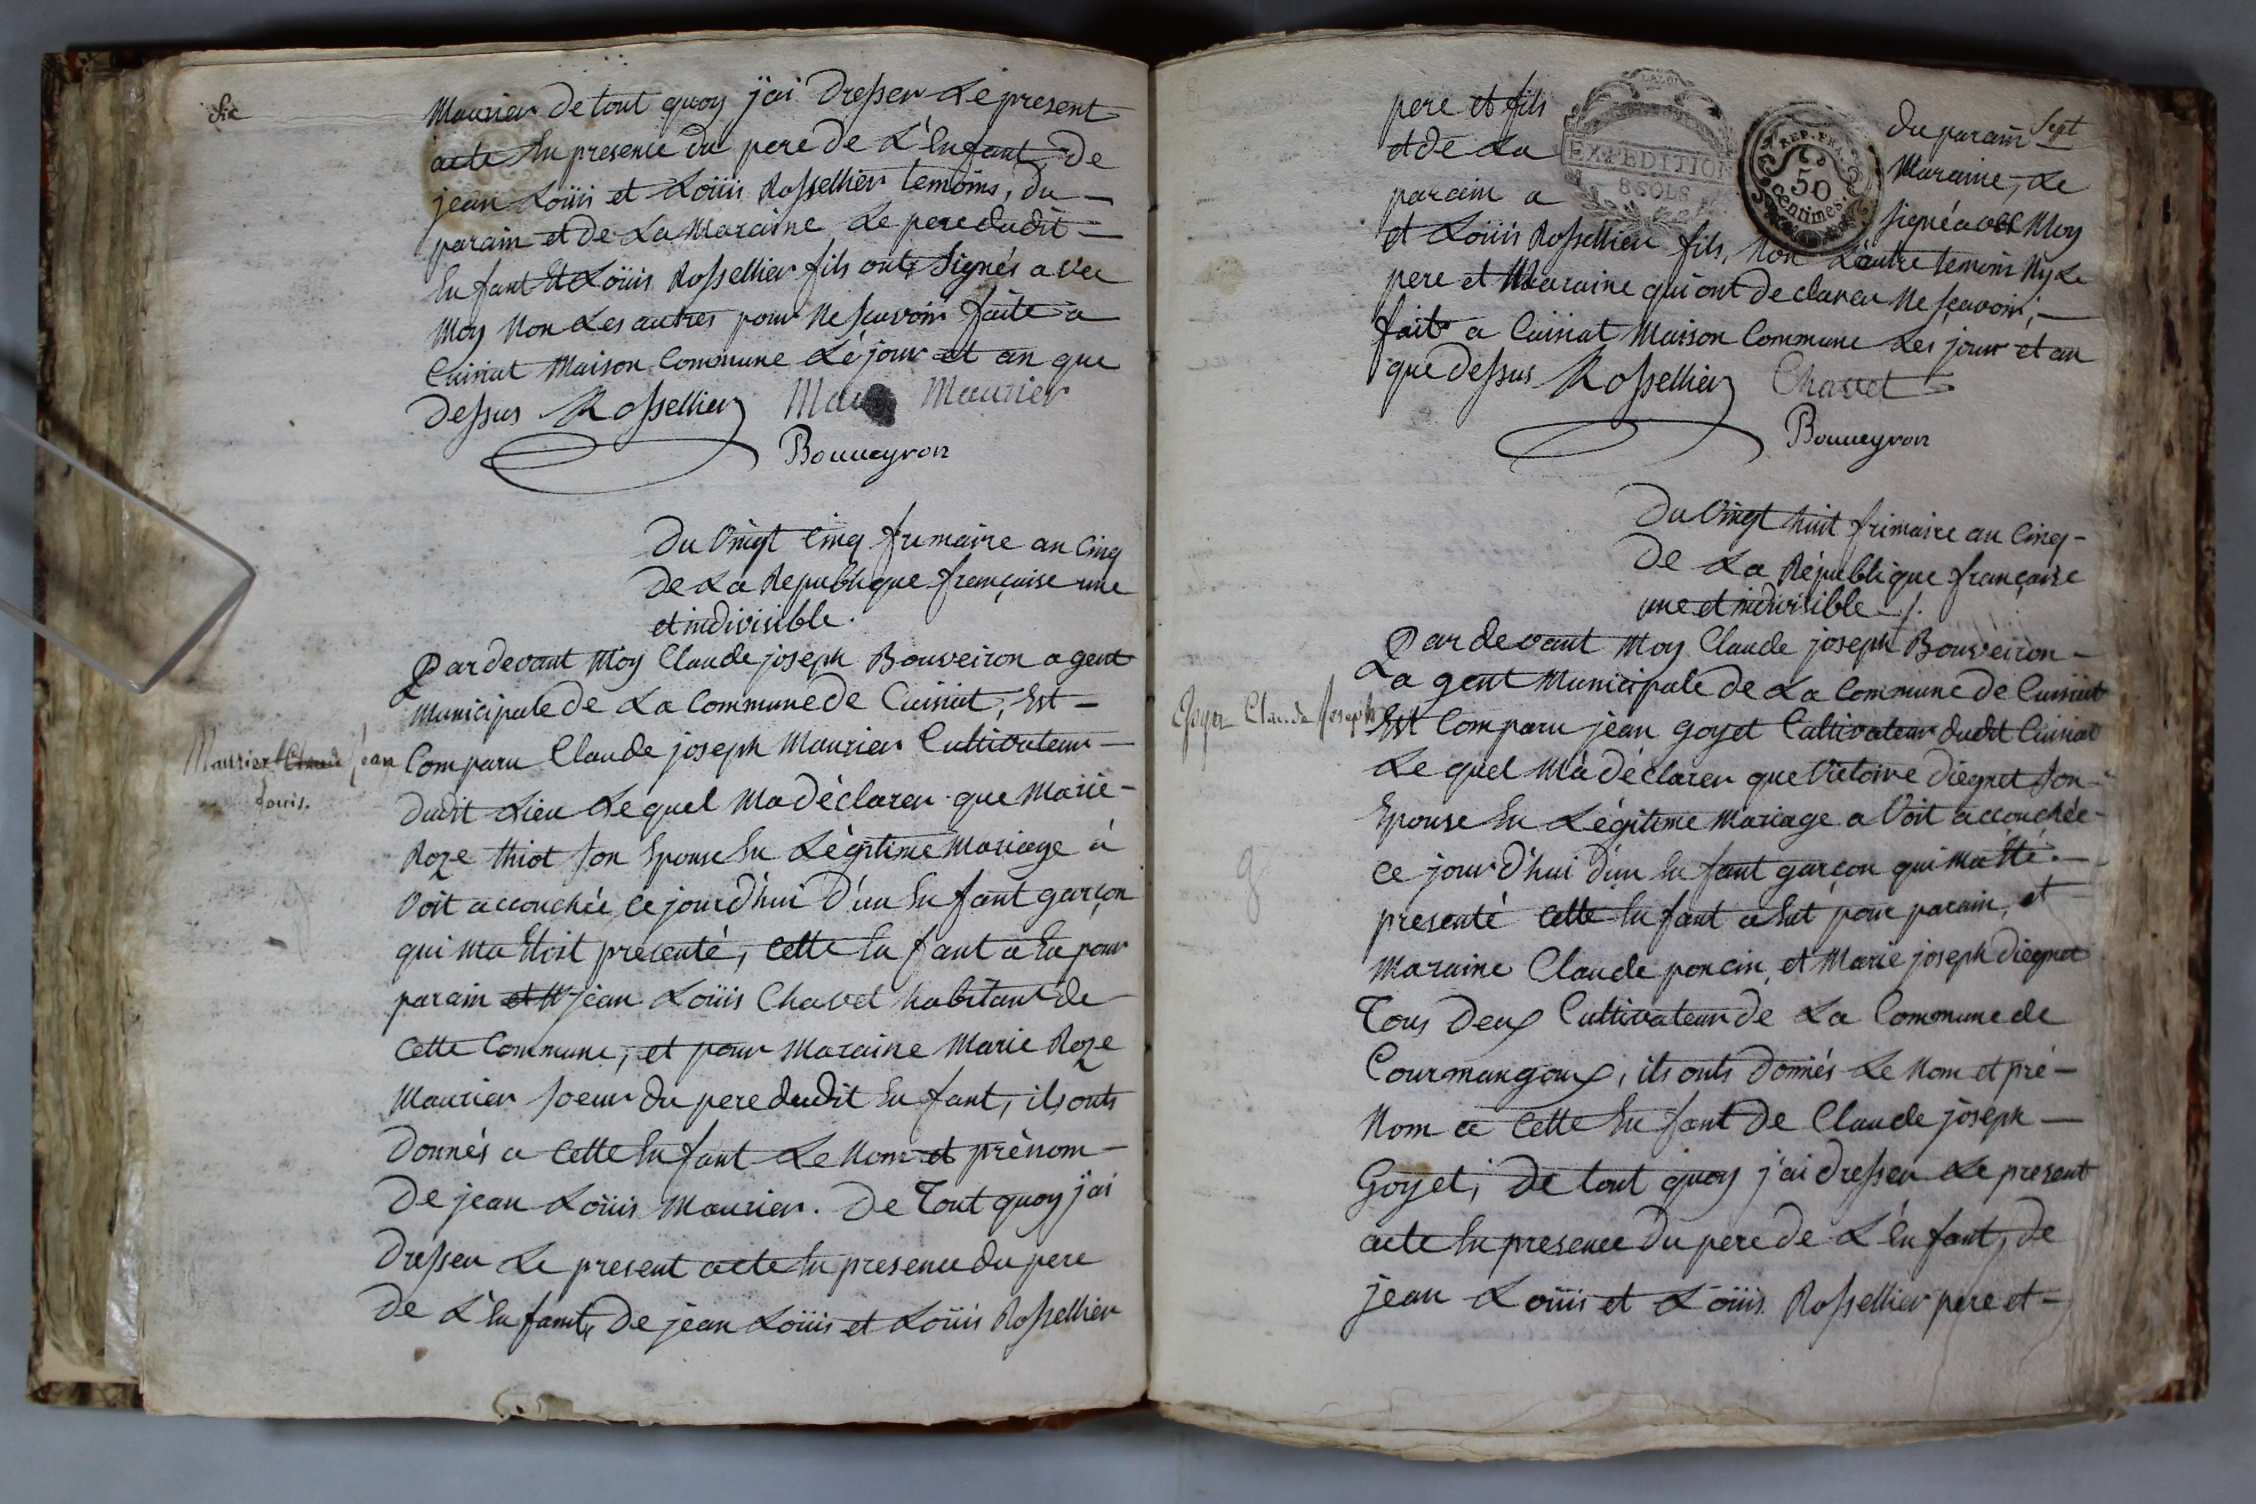 Six
Maurier de tout quoy j'ai Dresser Le present
acte En presence du pere de L'Enfant, de
jean Loüis et Loüis Rossellier temoins, du
parain et de La Maraine Le pere dudit
Enfant Et Loüis Rossellier fils onts Signés avec
Moy Non Les autres pour Ne scavoir faite a
Cuisiat Maison Commune Le jour et an que
dessus Rossellier Maurier
Bouueyron
Du Vingt Cinq frimaire an Cinq
de La Republique françaisse une
et indivisible.
Maurier Claud Jean
Louis.
Pardevant Moy Claude joseph Bouveiron agent
Municipale de La Commune de Cuisiat, Est
Comparu Claude joseph Maurier Cultivateur
dudit Lieu Lequel Ma dèclarer que Marie
Roze thiot son Epouse En Lègitime Mariage à
Voit accouchée ce jourd'hui D'un Enfant garçon
qui ma Etoit presenté, cette Enfant a Eu pour
parain et Mr jean Loüis Chavet habitant de
cette Commune, et pour Maraine Marie Roze
Maurier soeur du pere dudit Enfant, ils onts
Donnés a cette Enfant Le Nom et prènom
De jean Loüis Maurier. De Tout quoy j'ai
Dresser Le present acte En presence du pere
De L'Enfant, De jean Loüis et Loüis Rossellier
Sept
pere et fils du parain
et de La Maraine, Le
parain a Signé avec Moy
EXPEDITION
8 SOLS
REP. FRA.
50
Centimes.
et Loüis Rossellier fils, Non L'autre temoin Ny Le
pere et Maraine qui ont declarer Ne sçavoir,
fait a Cuisiat Maison Commune Les jour et an
que dessus Rossellier Chavet
Bouueyron
Du Vingt huit frimaire an Cinq
De La République française
une et indivisible
Pardevant Moy Claude joseph Bouveiron
agent Municipale de La Commune de Cuisiat
Goyet Claude Joseph
Est Comparu jean goyet Cultivateur dudit Cuisiat
Lequel Mà déclarer que Victoire diegnet son
Epouse En Légitime Mariage a Voit accouchée
ce jourd'hui d'un Enfant garçon qui Ma Eté
presenté cette Enfant a Eut pour parain, et
Maraine Claude poncin, et Marie joseph diegnet
Tous Deux Cultivateur de La Commune de
Courmangoux, ils onts Donnés Le Nom et pré
Nom a cette Enfant de Claude joseph
Goyet, De tout quoy j'ai dresser Le present
acte En presence du pere de L'Enfant, de
jean Loüis et Loüis Rossellier pere et